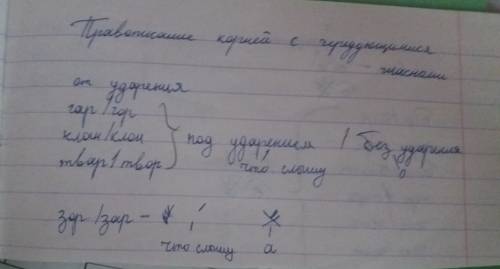 Правописание корней с чередующимися
гласными
от ударения
гар/гор
клан/клон
твар/твор
под ударением / без ударения
что слышу о
зор/зар -
что слышу а